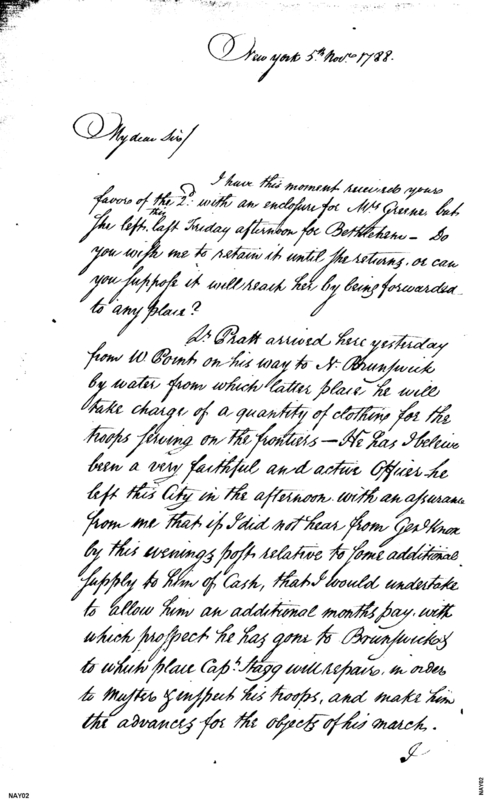 New york 5th Novr. 1788.
My dear Sir/
I have this moment received yours
favors of the 2d. with an enclosure for Mrs Greene, but
She left this last Friday afternoon for Bethlehem – Do
you wish me to retain it until She returns, or can
you suppose it will reach her by being forwarded
to any place?
Lt. Pratt arrived here yesterday
from W Point on his way to N. Brunswick
by water from which latter place he will
take charge of a quantity of clothing for the
troops serving on the frontiers – He has I beleive
been a very faithful and active Officer he
left this City in the afternoon with an assurance
from me that if I did not hear from Genl Knox
by this evenings post relative to some additional
supply to him of Cash, that I would undertake
to allow him an additional months pay, with
which prospect he has gone to Brunswick &
to which place Capt. Stagg will repair, in order
to Muster & inspect his troops, and make him
the advances for the objects of his march.
I
NAY02
NAY02